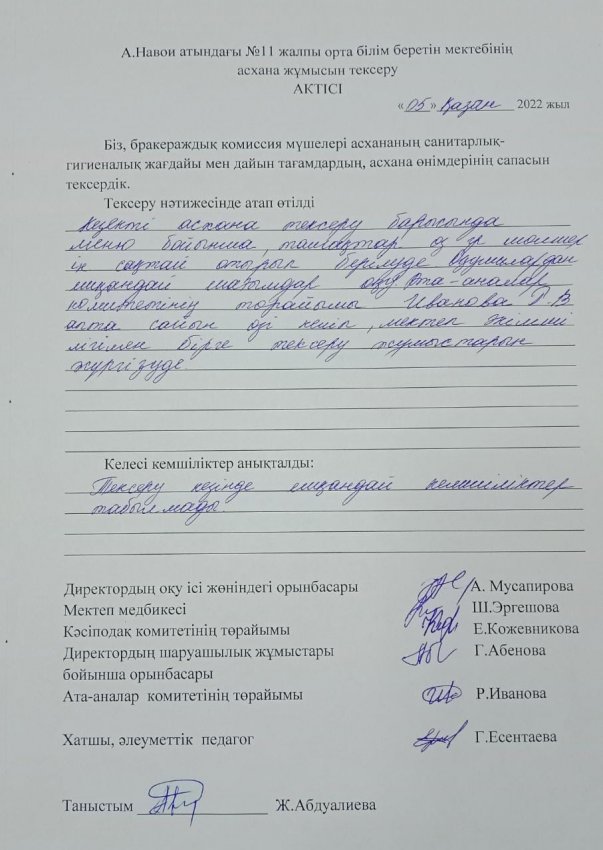 А.Навои атындағы №11 жалпы орта білім беретін мектебінің
асхана жұмысын тексеру
АКТІСІ
«05» Қазан 2022 жыл
Біз, бракераждық комиссия мүшелері асхананың санитарлық-
гигиеналық жағдайы мен дайын тағамдардың, асхана өнімдерінің сапасын
тексердік.
Тексеру нәтижесінде атап өтілді
Кезекті асхана тексеру барысында
меню бойынша, тамақтар
ік сақтай отырып берілуде
ешқандай шағымдар ата-аналар
комитетінің төрайымы Иванова Р.В
апта сайын өзі келіп, мектеп әкімші
лігімен бірге тексеру жұмыстарын
жүргізуде.
Келесі кемшіліктер анықталды:
Тексеру кезінде ешқандай кемшіліктер
табылмады
Директордың оқу ісі жөніндегі орынбасары А. Мусапирова
Мектеп медбикесі Ш.Эргешова
Кәсіподақ комитетінің төрайымы Е.Кожевникова
Директордың шаруашылық жұмыстары Г.Абенова
бойынша орынбасары
Ата-аналар комитетінің төрайымы Р.Иванова
Хатшы, әлеуметтік педагог Г.Есентаева
Таныстым Ж.Абдуалиева